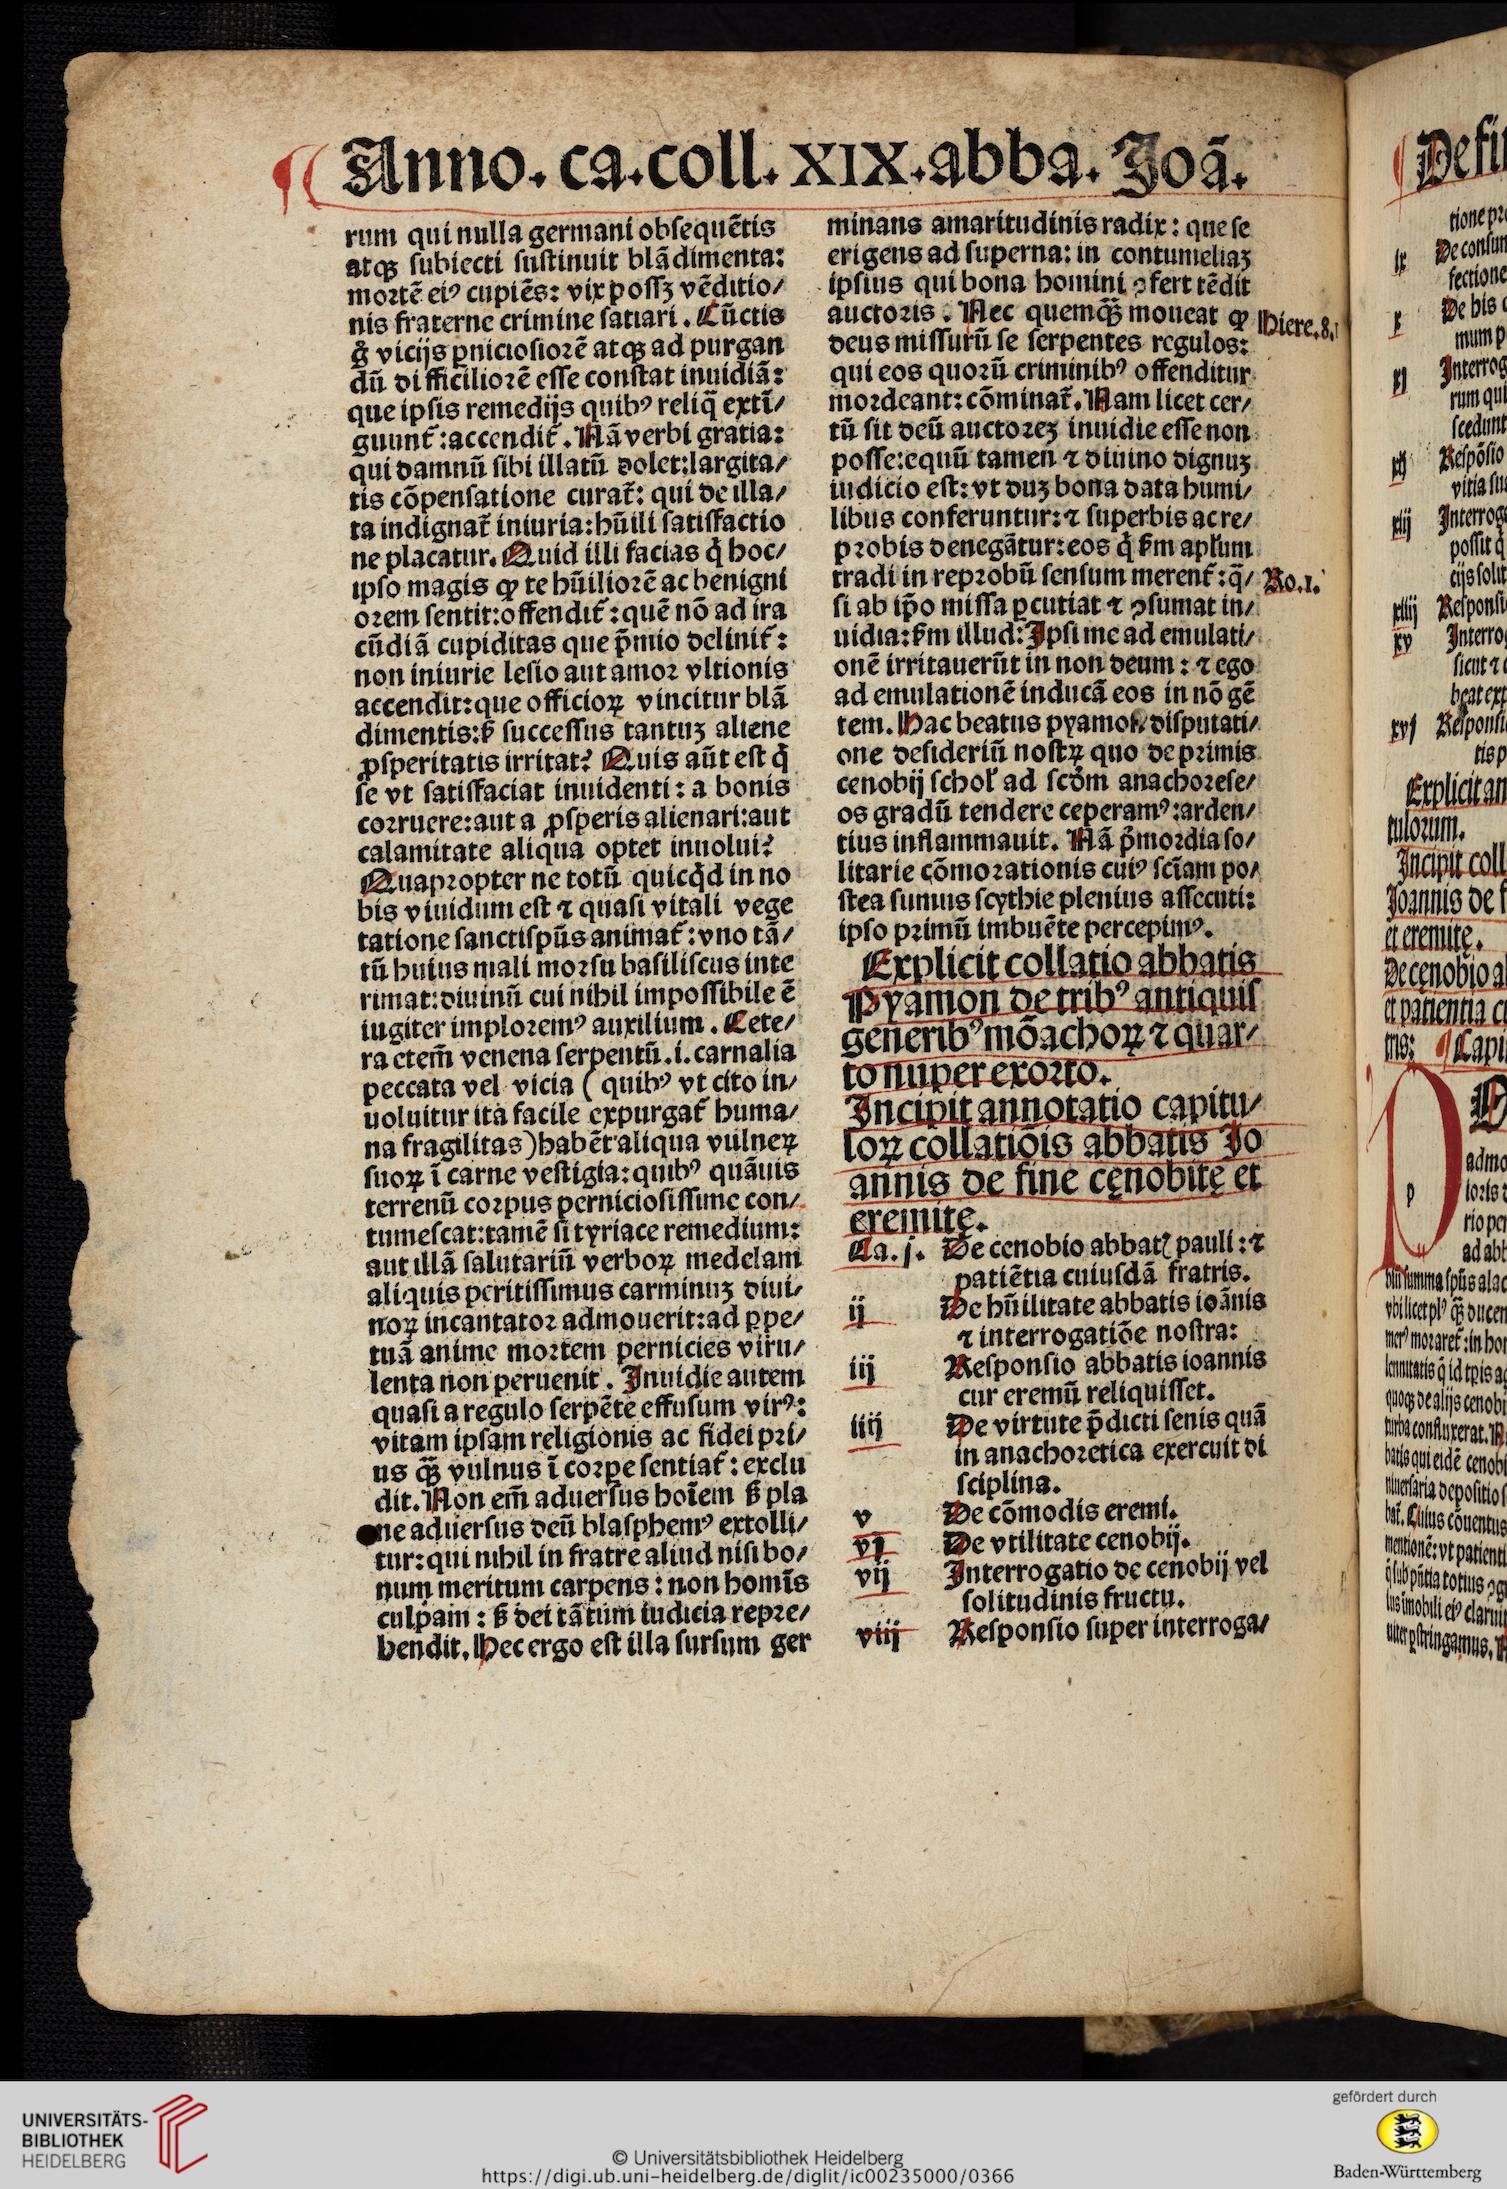 Anno. ca. coll. XIX. abba. Joã.
rum qui nulla germani obſequẽtis
atqꝫ ſubiecti ſuſtinuit blãdimenta:
moꝛtẽ eiꝰ cupiẽs: vix poſſꝫ vẽditio/
nis fraterne crimine ſatiari. Cũctis
g̊ vicijs ꝑnicioſioꝛẽ atqꝫ ad purgan
dũ difficilioꝛẽ eſſe conſtat inuidiã:
que ipſis remedijs quibꝰ reliq̃ extĩ/
guunt᷑: accendit᷑. Nã verbi gratia:
qui damnũ ſibi illatũ dolet: largita/
tis cõpenſatione curat᷑: qui de illa/
ta indignat᷑ iniuria: hũili ſatiſfactio
ne placatur. Quid illi facias q̇ hoc/
ipſo magis ꝙ te hũilioꝛẽ ac benigni
oꝛem ſentit: offendit᷑: quẽ nõ ad ira
cũdiã cupiditas que p̃mio delinit᷑:
non iniurie leſio aut amoꝛ vltionis
accendit: que officioꝝ vincitur blã
dimentis: ẜ ſucceſſus tantuꝫ aliene
ꝓſperitatis irritat? Quis aũt eſt q̇
ſe vt ſatiſfaciat inuidenti: a bonis
coꝛruere: aut a ꝓſperis alienari: aut
calamitate aliqua optet inuolui?
Quapꝛopter ne totũ quicq̇d in no
bis viuidum eſt ⁊ quaſi vitali vege
tatione ſancti ſpũs animat᷑: vno tã/
tũ huius mali moꝛſu baſiliſcus inte
rimat: diuinũ cui nihil impoſſibile ẽ
iugiter imploꝛemꝰ auxilium. Cete/
ra etem̃ venena ſerpentũ .i. carnalia
peccata vel vicia (quibꝰ vt cito in/
uoluitur ita facile expurgat᷑ huma/
na fragilitas) habẽt aliqua vulneꝝ
ſuoꝝ ĩ carne veſtigia: quibꝰ quãuis
terrenũ coꝛpus pernicioſiſſime con/
tumeſcat: tamẽ ſi tyriace remedium:
aut illã ſalutariũ verboꝝ medelam
aliquis peritiſſimus carminuꝫ diui/
noꝝ incantatoꝛ admouerit: ad ꝑpe/
tuã anime moꝛtem pernicies viru/
lenta non peruenit. Inuidie autem
quaſi a regulo ſerpẽte effuſum virꝰ:
vitam ipſam religionis ac fidei pꝛi/
us qꝫ̃ vulnus ĩ coꝛpe ſentiat᷑: exclu
dit. Non em̃ aduerſus hoĩem ẜ pla
ne aduerſus deũ blaſphemꝰ extolli/
tur: qui nihil in fratre aliud niſi bo/
num meritum carpens: non homĩs
culpam: ẜ dei tãtum iudicia repꝛe/
hendit. Hec ergo eſt illa ſurſum ger
minans amaritudinis radix: que ſe
erigens ad ſuperna: in contumeliaꝫ
ipſius qui bona homini ↄfert tẽdit
auctoꝛis. Nec quemqꝫ̃ moueat ꝙ
deus miſſurũ ſe ſerpentes regulos:
qui eos quoꝛũ criminibꝰ offenditur
moꝛdeant: cõminat᷑. Nam licet cer/
tũ ſit deũ auctoꝛeꝫ inuidie eſſe non
poſſe: equũ tamen ⁊ diuino dignuꝫ
iudicio eſt: vt duꝫ bona data humi/
libus conferuntur: ⁊ ſuperbis ac re/
pꝛobis denegãtur: eos q̇ ẜm apl̃um
tradi in repꝛobũ ſenſum merent᷑: q̃/
ſi ab ip̃o miſſa ꝑcutiat ⁊ ↄſumat in/
uidia: ẜm illud: Ipſi me ad emulati/
onẽ irritauerũt in non deum: ⁊ ego
ad emulationẽ inducã eos in nõ gẽ
tem. Hac beatus pyamon diſputati/
one deſideriũ noſtꝝ quo de pꝛimis
cenobij ſchol̃ ad ſcd̃m anachoꝛeſe/
os gradũ tendere ceperamꝰ: arden/
tius inflammauit. Nã p̃moꝛdia ſo/
litarie cõmoꝛationis cuiꝰ ſcĩam po/
ſtea ſumus ſcythie plenius aſſecuti:
ipſo pꝛimũ imbuẽte percepimꝰ.
Explicit collatio abbatis
Pyamon de tribꝰ antiquiſ
generibꝰ mõachoꝝ ⁊ quar/
to nuper exoꝛto.
Incipit annotatio capitu/
loꝝ collatiõis abbatis Jo
annis de fine cęnobitę et
eremitę.
Ca. j. De cenobio abbatꝭ pauli: ⁊
patiẽtia cuiuſdã fratris.
ij De hũilitate abbatis ioãnis
⁊ interrogatiõe noſtra:
iij Reſponſio abbatis ioannis
cur eremũ reliquiſſet.
iiij De virtute p̃dicti ſenis quã
in anachoꝛetica exercuit di
ſciplina.
v De cõmodis eremi.
vj De vtilitate cenobij.
vij Interrogatio de cenobij vel
ſolitudinis fructu.
viij Reſponſio ſuper interroga/
Hiere. 8.
Ro. 1.
ix
x
xj
xij
xiij
xiiij
xv
xvj
Explicit an
tulorum.
Incipit coll
Joannis de f
et eremitę.
De cęnobio a
et patientia c
tris: Capi
p
UNIVERSITÄTS-
BIBLIOTHEK
HEIDELBERG
© Universitätsbibliothek Heidelberg
https://digi.ub.uni-heidelberg.de/diglit/ic00235000/0366
gefördert durch
Baden-Württemberg